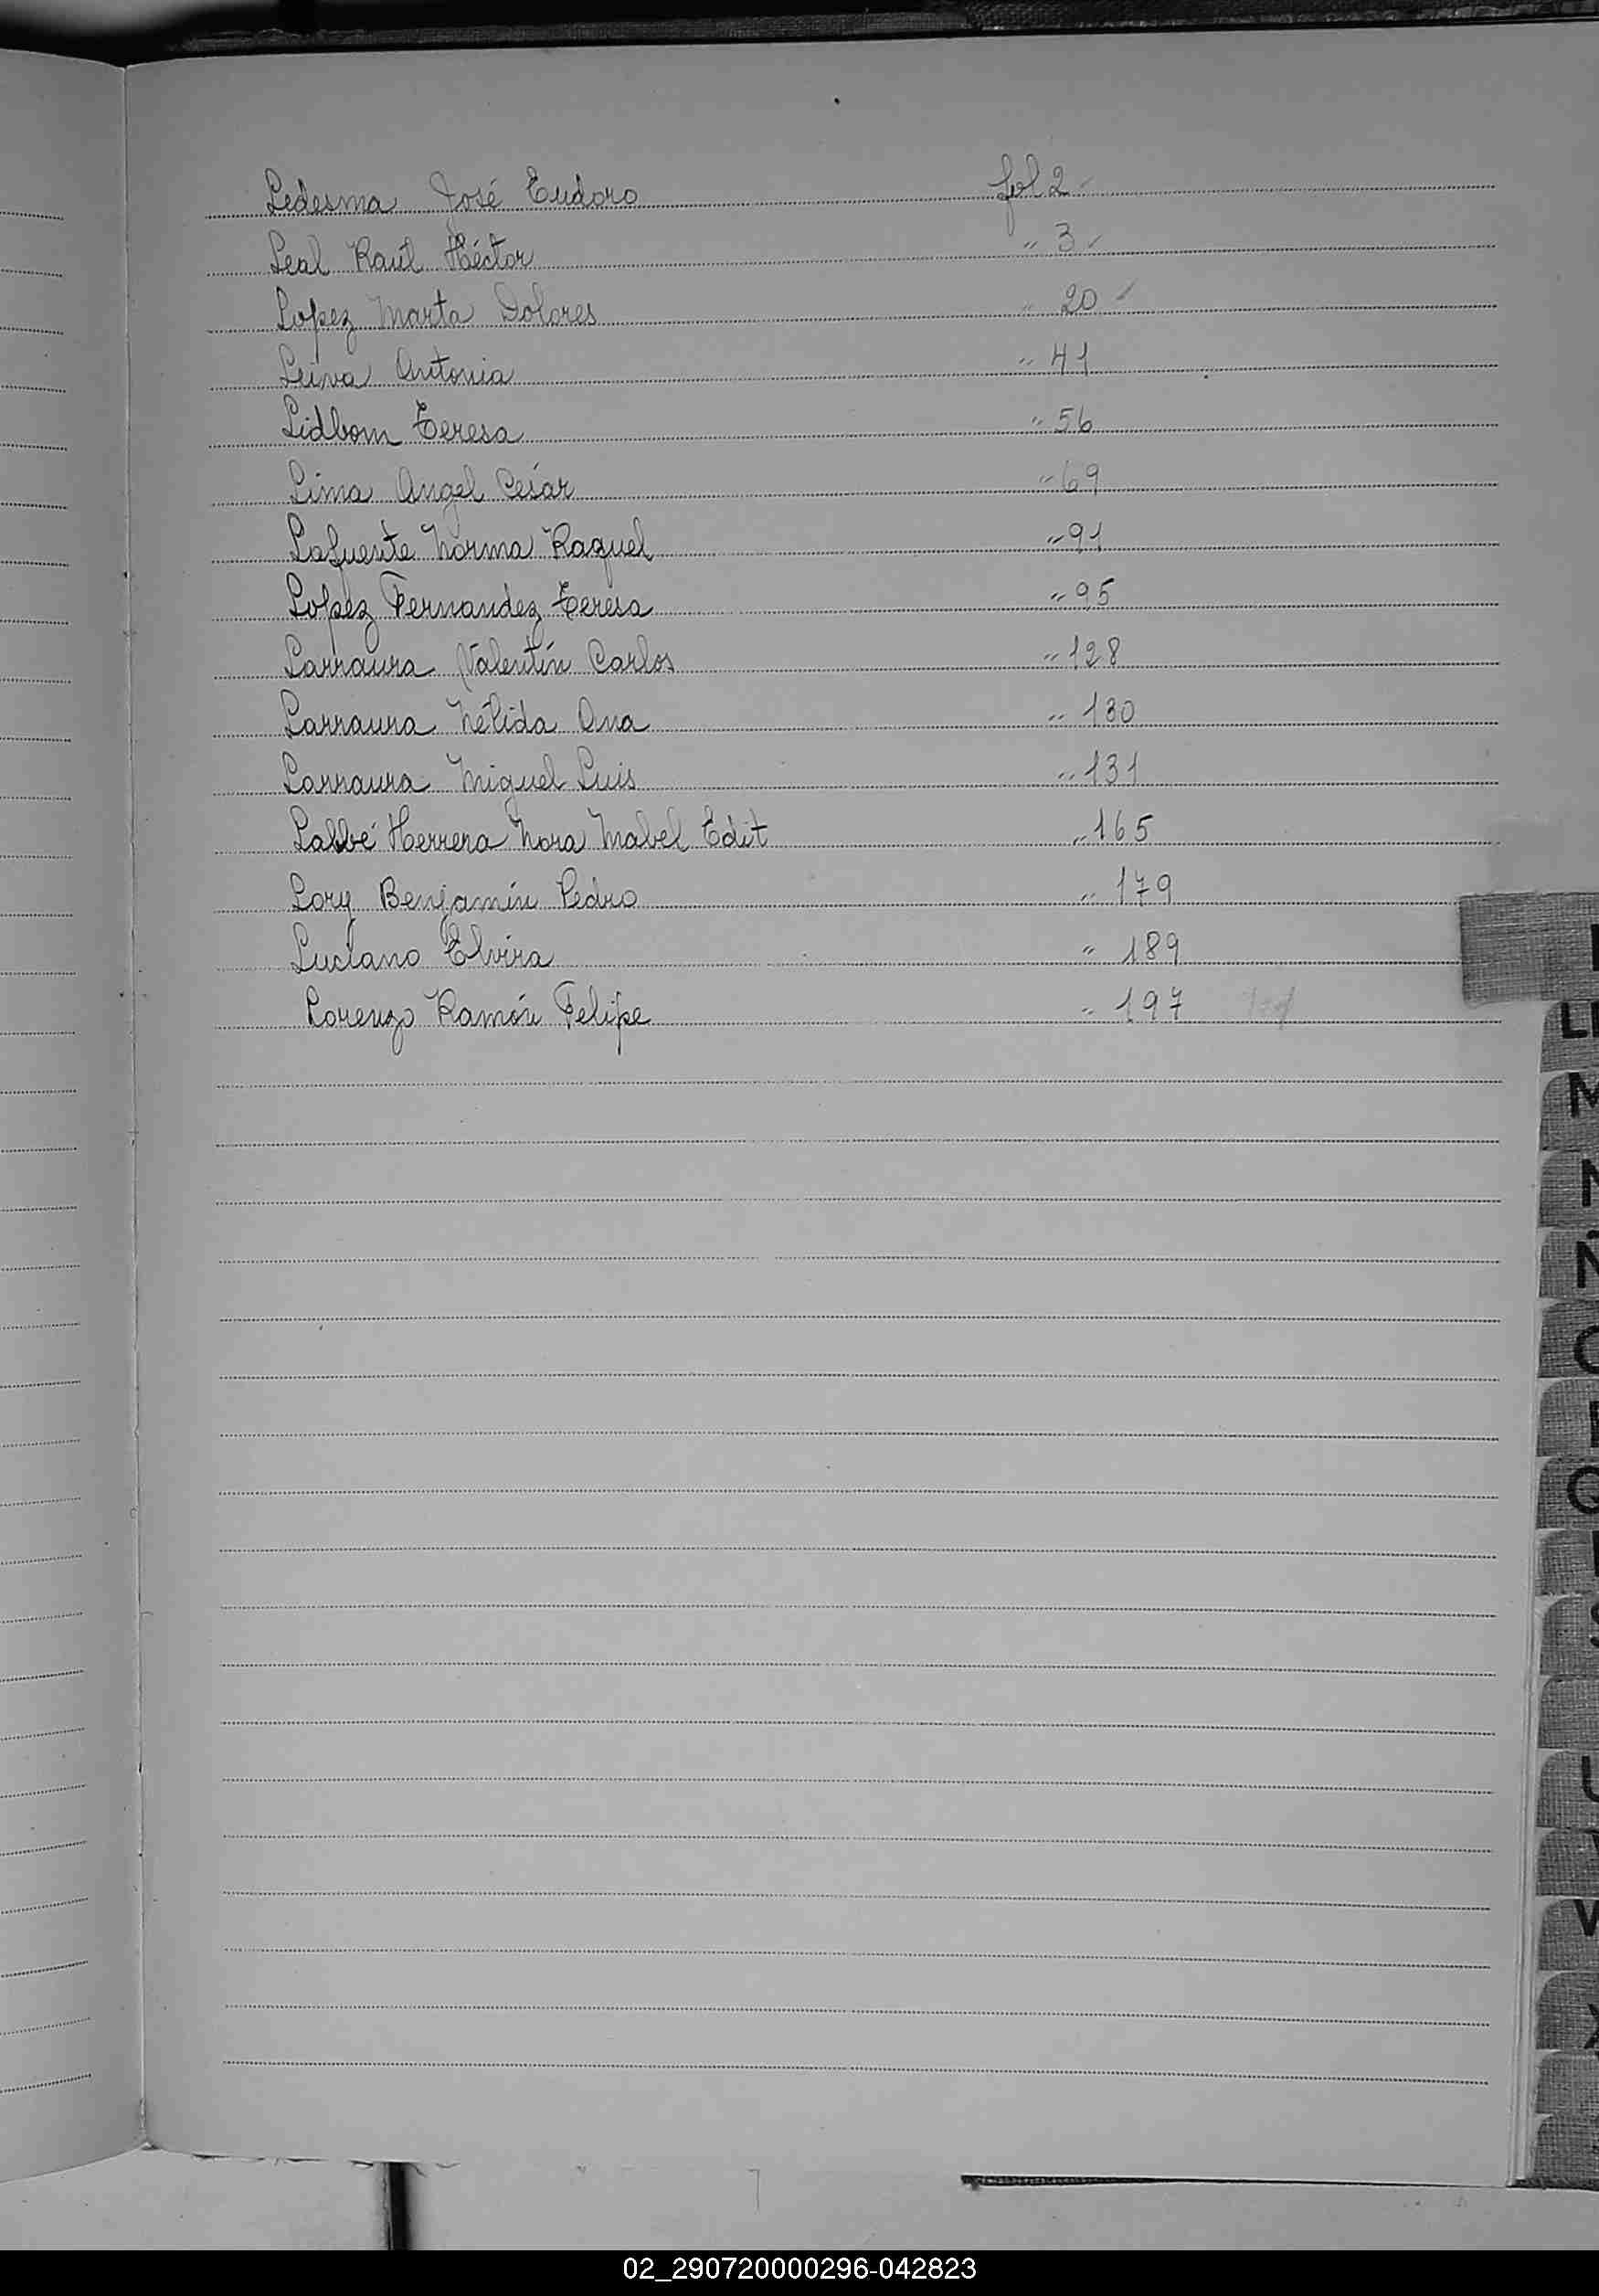 Ledesma José Eudoro fol 2 -
Leal Raúl Héctor " 3 -
Lopez Marta Dolores " 20 -
Leiva Antonia " 41
Lidbom Teresa " 56
Lima Angel Cesár " 69
Lafuente Norma Raquel " 91
Lopez Fernandez Teresa " 95
Larraura Valentín Carlos " 128
Larraura Nélida Ana " 130
Larraura Miguel Luis " 131
Labbé Herrera Nora Mabel Edit " 165
Lory Benjamín Pedro " 179
Luciano Elvira " 189
Lorenzo Ramón Felipe " 197
L
LL
M
N
Ñ
O
P
Q
R
S
U
V
W
X
02_290720000296-042823